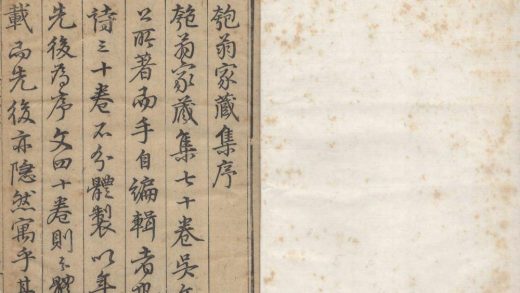 匏翁家藏集序
匏翁家藏集七十卷吳文
公所著而手自編輯者也
詩三十卷不分體製以年
先後為序文四十卷則分體
載而先後亦隱然寓乎其